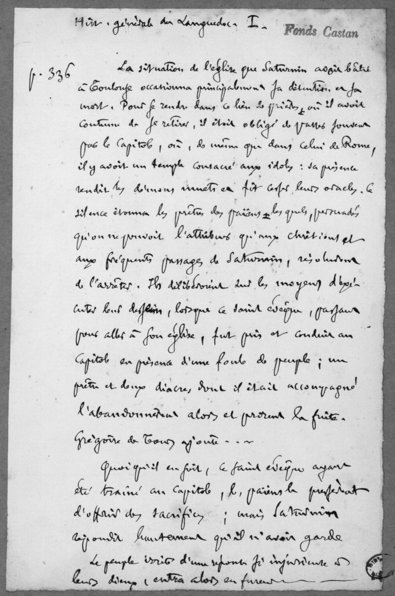 Hist. générale du Languedoc. I.
Fonds Castan
p. 336
La situation de l'église que Saturnin avait bâtie
à Toulouse occasionna principalement sa détention et sa
mort. Pour se rendre dans ce lieu de prières, où il avoit
coutume de se retirer, il étoit obligé de passer souvent
par le Capitole, où, de même que dans celui de Rome,
il y avoit un temple consacré aux idoles : sa présence
rendit les démons muets et fit cesser leurs oracles. Ce
silence étonna les prêtres des païens, lesquels, persuadés
qu'on ne pouvoit l'attribuer qu'aux chrétiens et
aux fréquents passages de Saturnin, résolurent
de l'arrêter. Ils délibéroient sur les moyens d'exé-
cuter leur dessein, lorsque ce saint évêque, passant
pour aller à son église, fut pris et conduit au
Capitole en présence d'une foule de peuple ; un
prêtre et deux diacres dont il était accompagné
l'abandonnèrent alors et prirent la fuite.
Grégoire de Tours ajoute - - ~
Quoi qu'il en soit, ce saint évêque ayant
été traîné au Capitole, les païens le pressèrent
d'offrir des sacrifices ; mais Saturnin
répondit hautement qu'il n'avoit garde
Le peuple irrité d'une réponse si injurieuse à
leurs dieux, entra alors en fureur